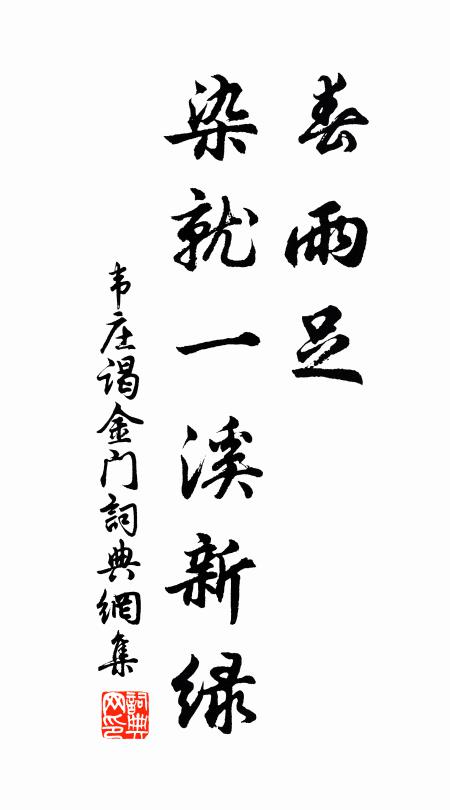 春雨足
染就一溪新绿
韦庄谒金门詞典網集
詞典
网印